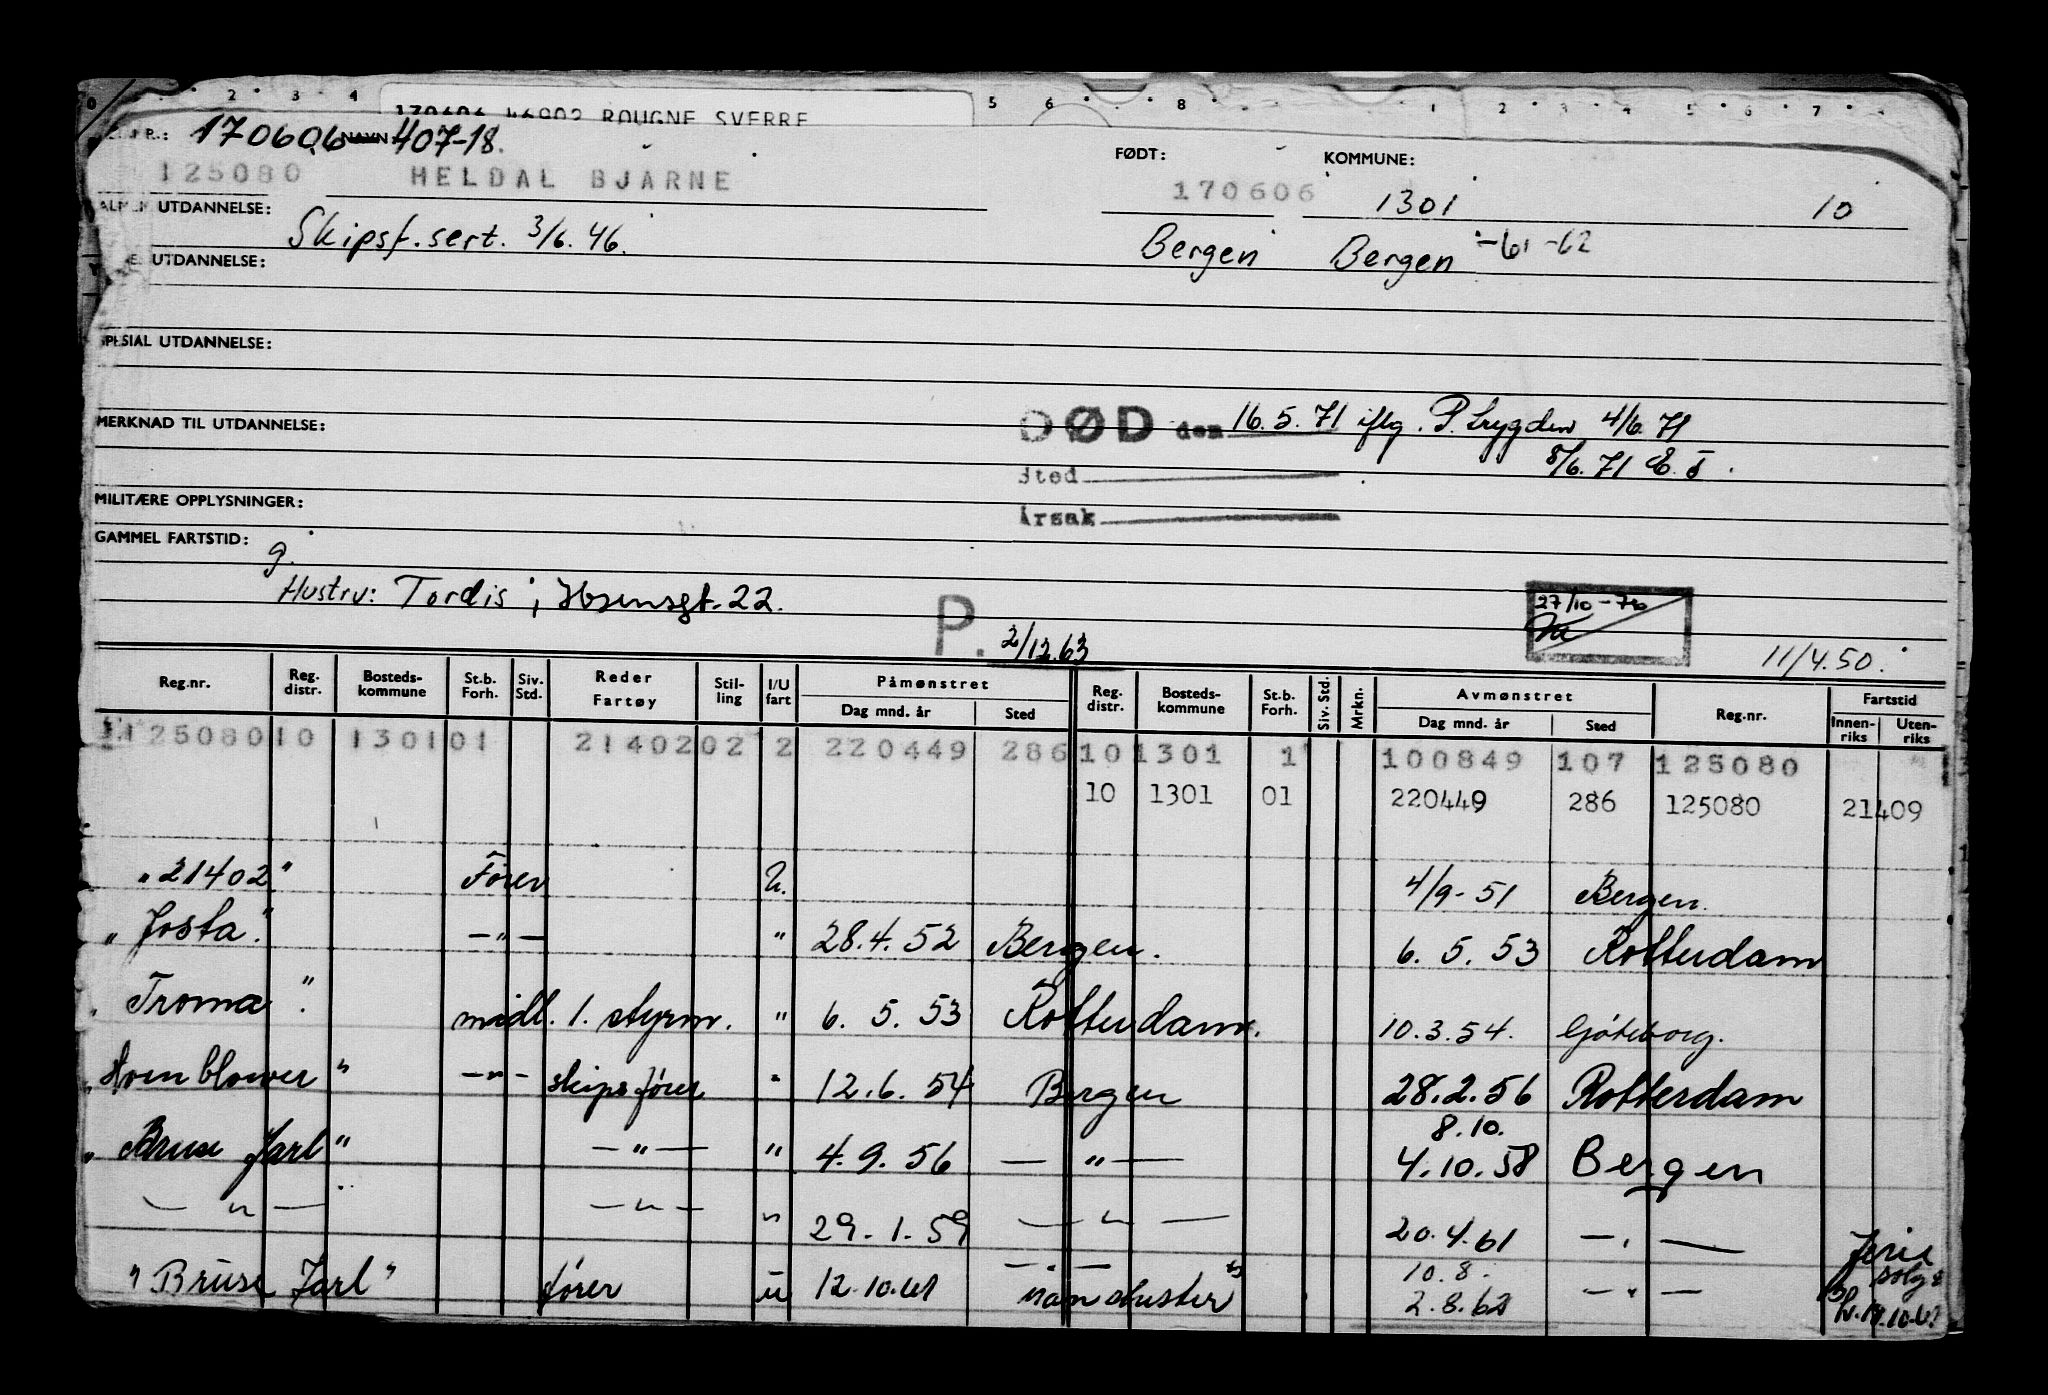 170606 46902 ROUGNE SVERRE
170606 NAVN 407-18.
125080 HELDAL BJARNE
FØDT: 170606
KOMMUNE: 1301 10
UTDANNELSE: Skipsf. sert. 3/6. 46.
Bergen Bergen -61-62
UTDANNELSE:
SPESIAL UTDANNELSE:
MERKNAD TIL UTDANNELSE:
DØD den 16.5.71 iflg. P. trygden 4/6. 71
8/6. 71
Sted
MILITÆRE OPPLYSNINGER:
Årsak
GAMMEL FARTSTID:
g.
Hustru: Tordis, Ibsensgt. 22.
P. 2/12.63
27/10-76
11/4.50.
Reg.nr. Reg. distr. Bosteds-kommune St.b. Forh. Siv. Std. Reder Fartøy Stil-ling I/U fart Påmønstret Dag mnd. år Sted Reg. distr. Bosteds-kommune St.b. Forh. Siv. Std. Mrkn. Avmønstret Dag mnd. år Sted Reg.nr. Fartstid Innen-riks Uten-riks
125080 10 1301 01 21402 02 2 220449 286 10 1301 1 100849 107 125080
10 1301 01 220449 286 125080 21409
"21402" Fører U. 4/9-51 Bergen.
"Josta" —"— " 28.4.52 Bergen. 6.5.53 Rotterdam
"Troma" midl. 1. styrm. " 6.5.53 Rotterdam. 10.3.54. Göteborg.
"Hornblower" —"— skipsfører " 12.6.54 Bergen 28.2.56 Rotterdam
8.10.
"Bruse Jarl" —"— " 4.9.56 —"— 4.10.58 Bergen
—"— —"— " 29.1.59 —"— 20.4.61 —"—
—"— 10.8.
"Bruse Jarl" fører u 12.10.61 Manchester 2.8.62 —"—
Ferie